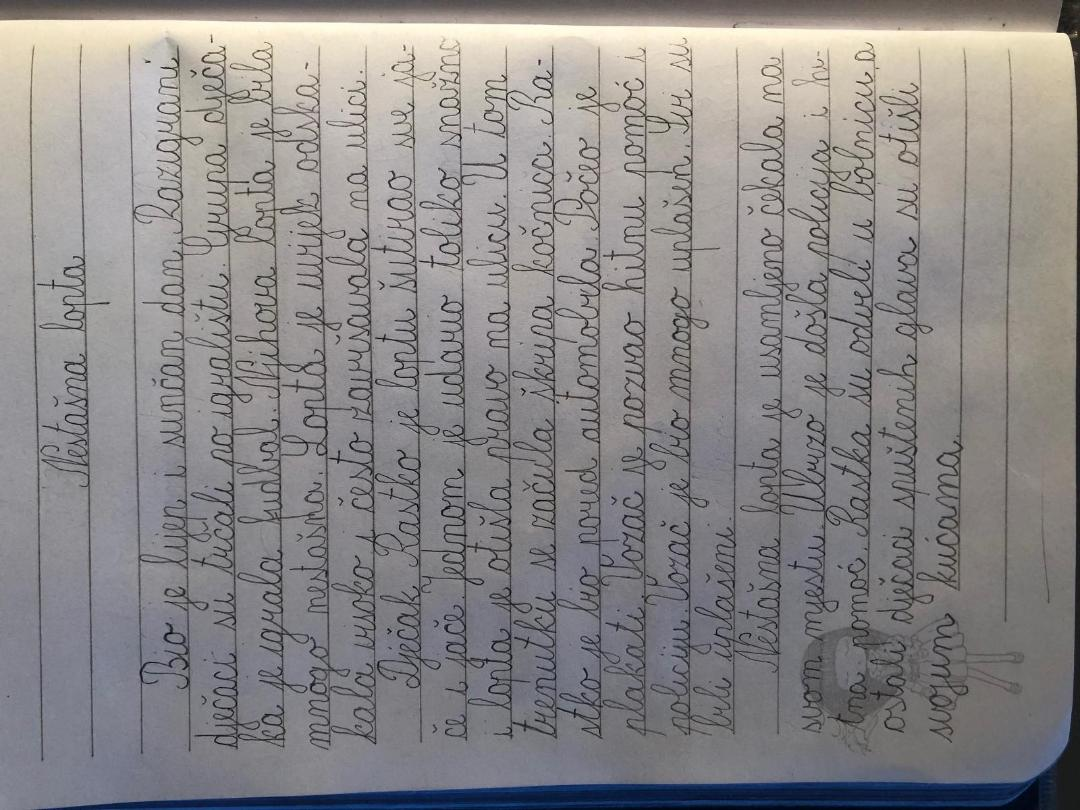 Nestašna lopta
Bio je lijep i sunčan dan. Razigrani
dječaci su trčali po igralištu. Grupa dječa-
ka je igrala fudbal. Njihova lopta je bila
mnogo nestašna. Lopta je uvijek odska-
kala visoko i često završavala na ulici.
Dječak Rastko je loptu šutirao sve ja-
če i jače. Jednom je udario toliko snažno
i lopta je otišla pravo na ulicu. U tom
trenutku se začula škripa kočnica. Ra-
stko je bio pored automobila. Počeo je
plakati. Vozač je pozvao hitnu pomoć i
policiju. Vozač je bio mnogo uplašen. Svi su
bili uplašeni.
Nestašna lopta je usamljeno čekala na
svom mjestu. Ubrzo je došla policija i hi-
tna pomoć. Rastka su odveli u bolnicu, a
ostali dječaci spuštenih glava su otišli
svojim kućama.